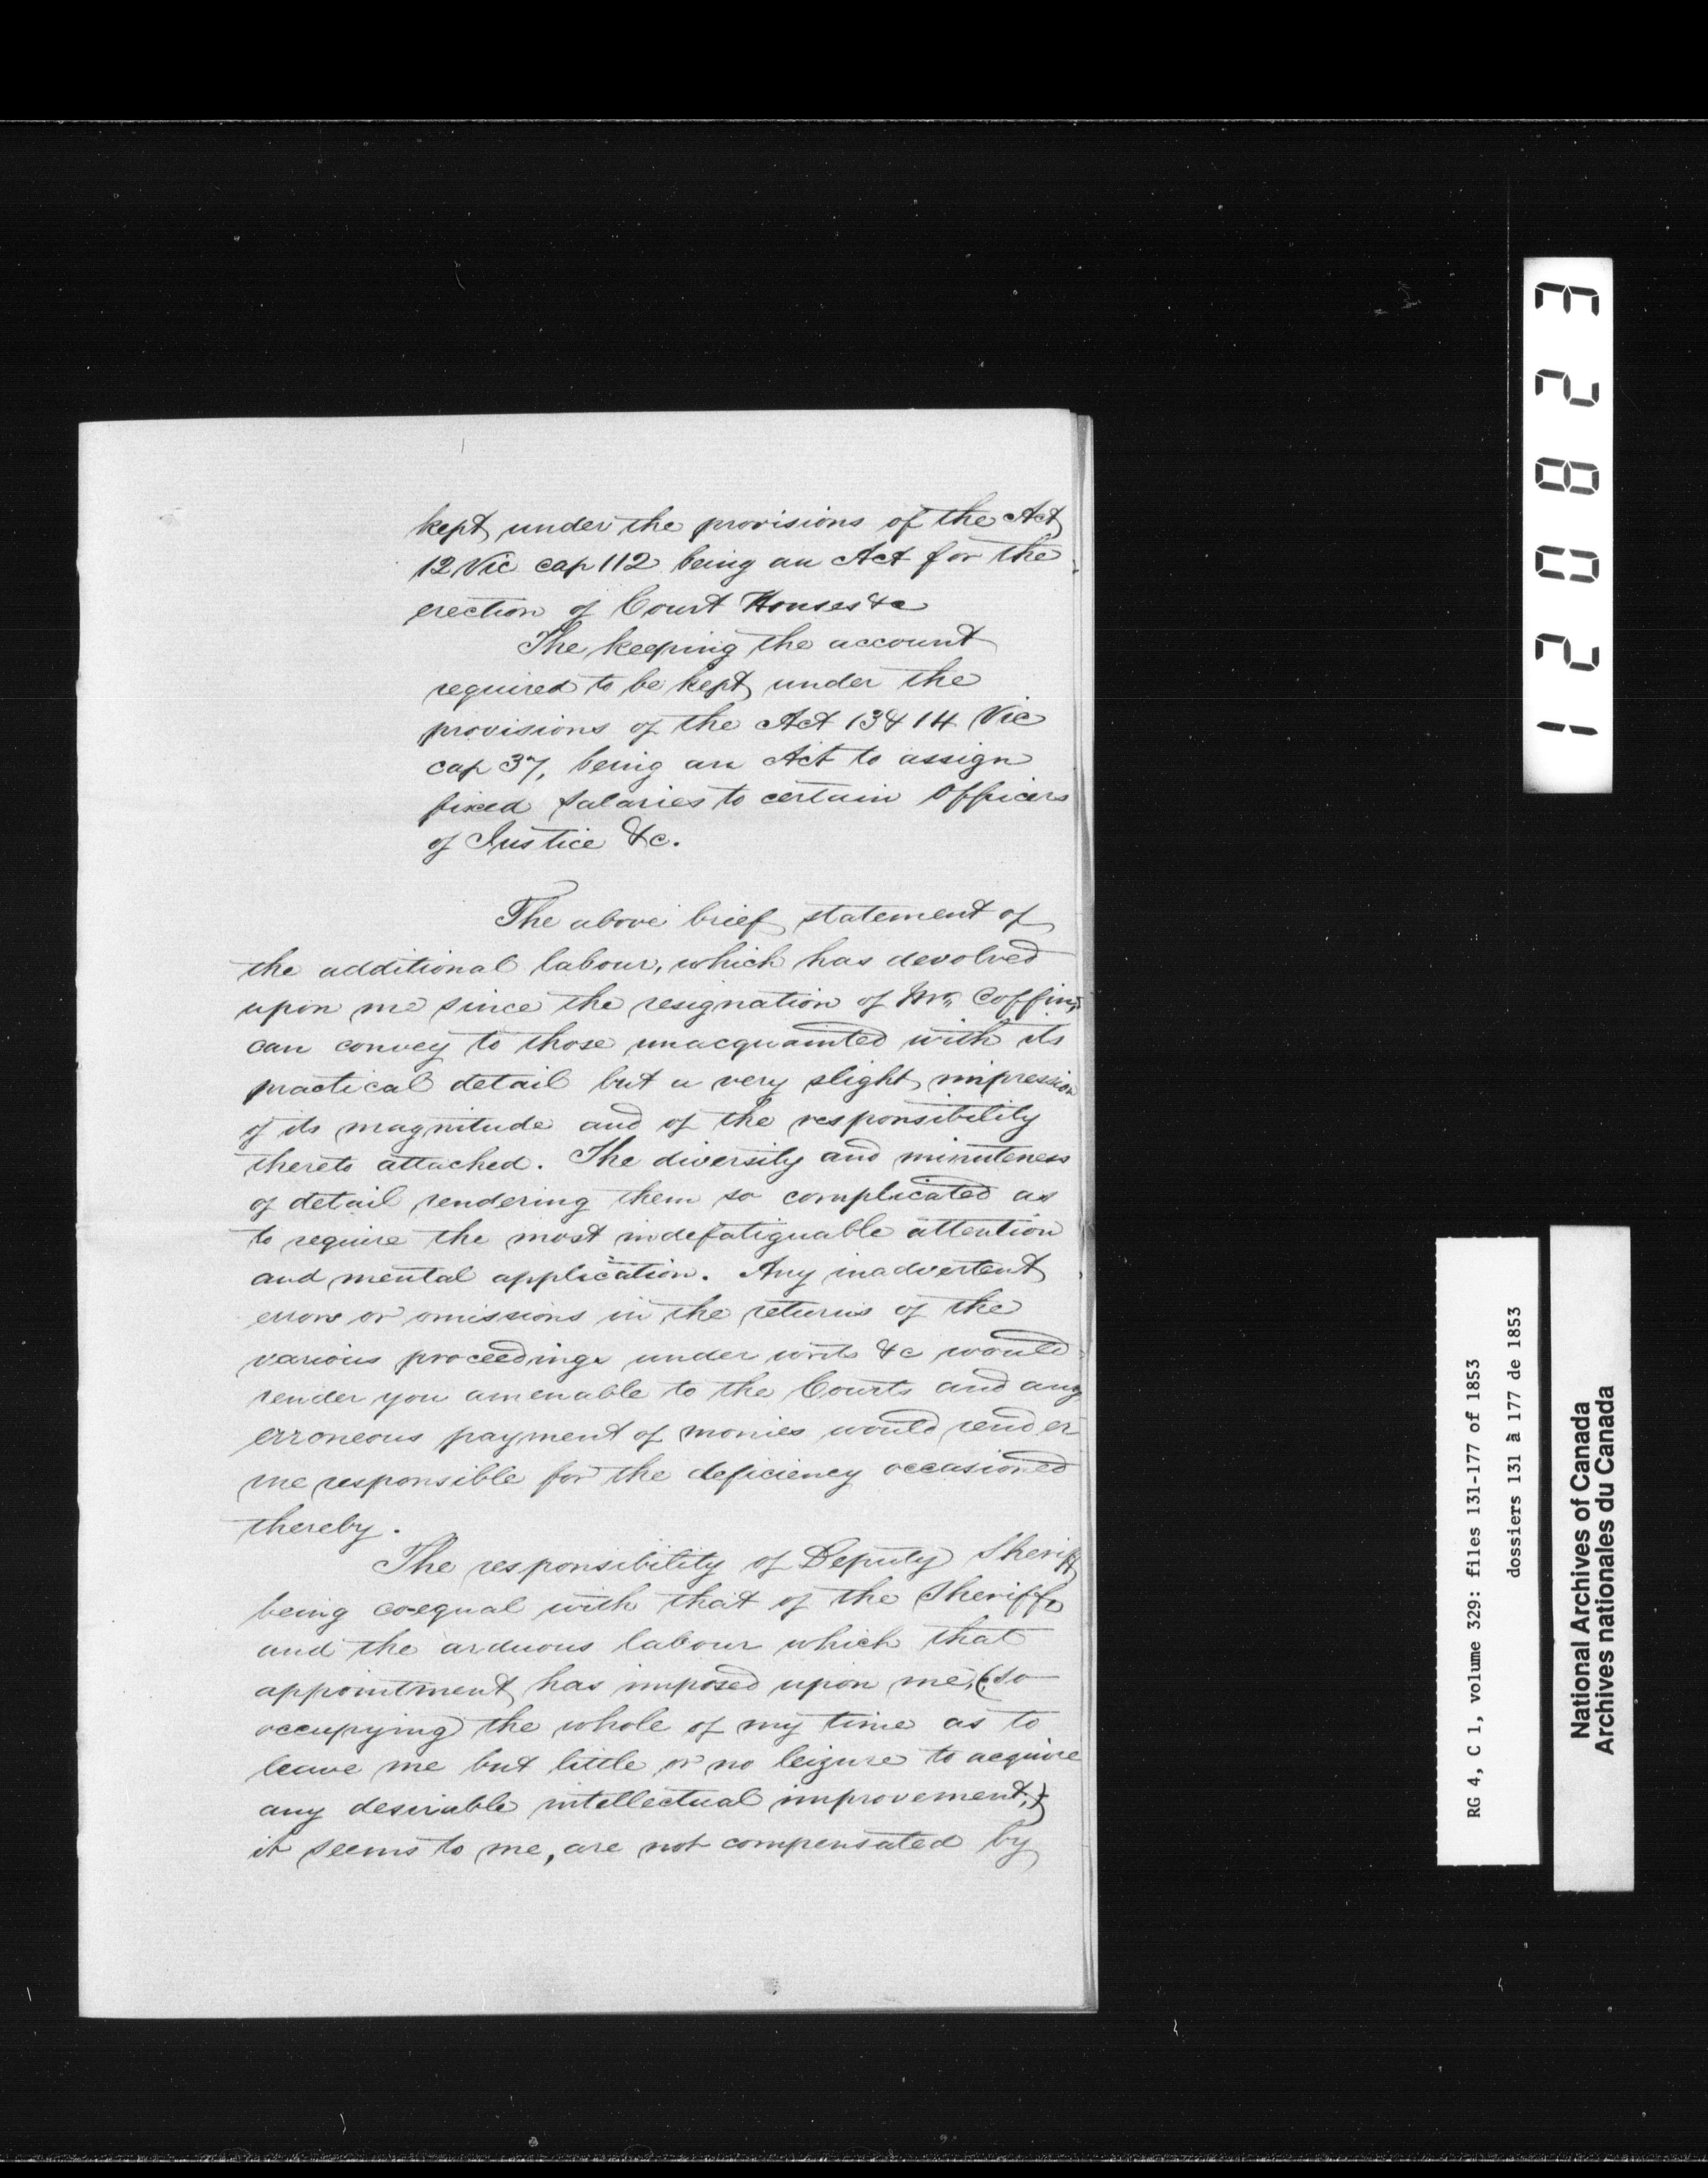 kept under the provisions of the Act
12 Vic cap 112 being an Act for the
erection of Court Houses &c
The keeping the account
required to be kept under the
provisions of the Act 13 & 14 Vic
cap 37, being an Act to assign
fixed salaries to certain Officers
of Justice &c.
The above brief statement of
the additional labour, which has devolved
upon me since the resignation of Mr. Coffin,
can convey to those unacquainted with its
practical detail but a very slight impression
of its magnitude and of the responsibility
thereto attached. The diversity and minuteness
of detail rendering them so complicated as
to require the most indefatiguable attention
and mental application. Any inadvertent
errors or omissions in the returns of the
various proceedings under writs &c would
render you amenable to the Courts and any
erroneous payment of monies would render
me responsible for the deficiency occasioned
thereby.
The responsibility of Deputy Sheriff
being co-equal with that of the Sheriffs
and the arduous labour which that
appointment has imposed upon me, (so
occupying the whole of my time as to
leave me but little or no leizure to acquire
any desirable intellectual improvement,)
it seems to me, are not compensated by
120823
RG 4, C 1, volume 329: files 131-177 of 1853
dossiers 131 à 177 de 1853
National Archives of Canada
Archives nationales du Canada